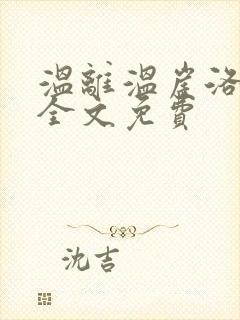 溫離溫崖洛
全文免費
沈吉